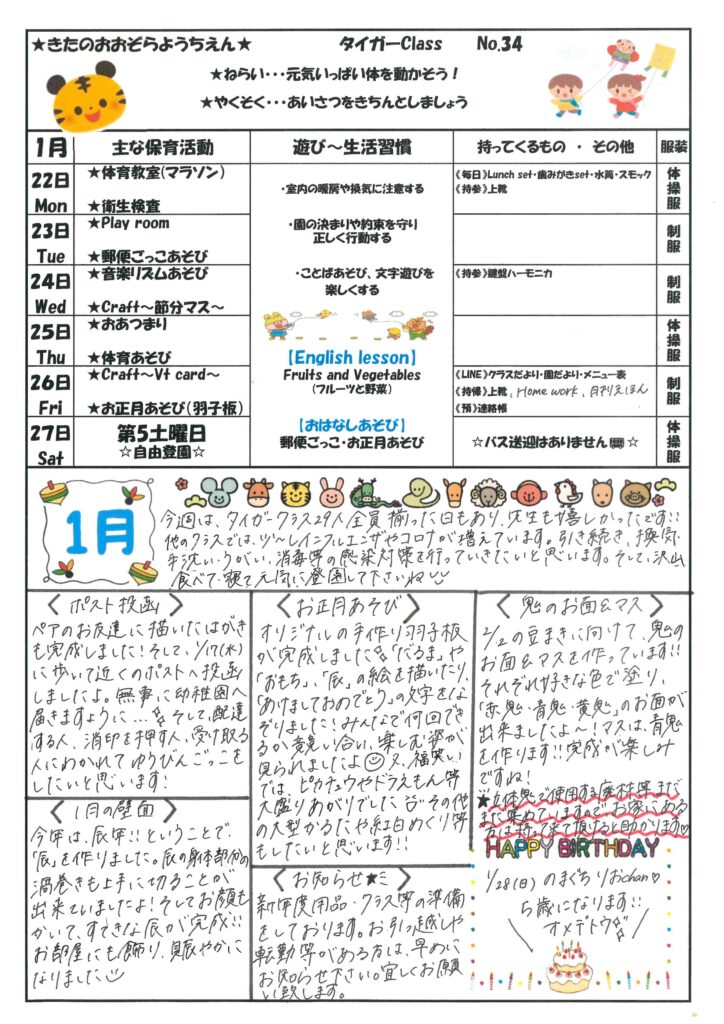 ★きたのおおぞらようちえん★ タイガーClass No.34
★ねらい・・・元気いっぱい体を動かそう！
★やくそく・・・あいさつをきちんとしましょう
1月 主な保育活動 遊び～生活習慣 持ってくるもの ・ その他 服装
22日 Mon
★体育教室(マラソン)
★衛生検査
《毎日》Lunch set・歯みがきset・水筒・スモック
《持参》上靴
体操服
23日 Tue
★Play room
★郵便ごっこあそび
制服
24日 Wed
★音楽リズムあそび
★Craft～節分マス～
《持参》鍵盤ハーモニカ
制服
25日 Thu
★おあつまり
★体育あそび
体操服
26日 Fri
★Craft～Vt card～
★お正月あそび(羽子板)
《LINE》クラスだより・園だより・メニュー表
《持帰》上靴、Home work、月刊えほん
《預》連絡帳
制服
27日 Sat
第5土曜日
☆自由登園☆
☆バス送迎はありません🚌☆
体操服
・室内の暖房や換気に注意する
・園の決まりや約束を守り
正しく行動する
・ことばあそび、文字遊びを
楽しくする
【English lesson】
Fruits and Vegetables
(フルーツと野菜)
【おはなしあそび】
郵便ごっこ・お正月あそび
1月
今週は、タイガークラス29人全員揃った日もあり、先生も嬉しかったです!!
他のクラスでは、少～しインフルエンザやコロナが増えています。引き続き、換気・
手洗い・うがい、消毒等の感染対策を行っていきたいと思います。そして、沢山
食べて・寝て元気に登園して下さいね
〈ポスト投函〉
ペアのお友達に描いたはがき
も完成しました！そして、1/17(水)
に歩いて近くのポストへ投函
しましたよ。無事に幼稚園へ
届きますように…。そして、配達
する人、消印を押す人、受け取る
人にわかれてゆうびんごっこを
したいと思います！
〈1月の壁面〉
今年は、辰年!!ということで
「辰」を作りました。辰の身体部分の
渦巻きも上手に切ることが
出来ていましたよ！そしてお顔も
かいて、すてきな辰が完成!!
お部屋にも飾り、賑やかに
なりました
〈お正月あそび〉
オリジナルの手作り羽子板
が完成しました「だるま」や
「おもち」、「辰」の絵を描いたり、
「あけましておめでとう」の文字をな
ぞりました！みんなで何回でき
るか競い合い、楽しむ姿が
見られましたよ 又、福笑い
では、ピカチュウやドラえもん等
大盛りあがりでした その他
の大型かるたや紅白めくり等
もしたいと思います!!
〈お知らせ★ミ〉
新年度用品・クラス等の準備
をしております。お引っ越しや
転勤等のある方は、早めに
お知らせ下さい。宜しくお願
い致します。
〈鬼のお面&マス〉
2/2の豆まきに向けて、鬼の
お面&マスを作っています!!
それぞれ好きな色で塗り、
「赤鬼・青鬼・黄鬼」のお面が
出来ましたよ～！マスは、青鬼
を作ります!!完成が楽しみ
ですね！
★立体鬼で使用する廃材等まだ
まだ集めていますので、お家にある
方は持って来て頂けると助かります♡
HAPPY BIRTHDAY
1/28(日)のまぐちりおchan♡
5歳になります!!
オメデトウ